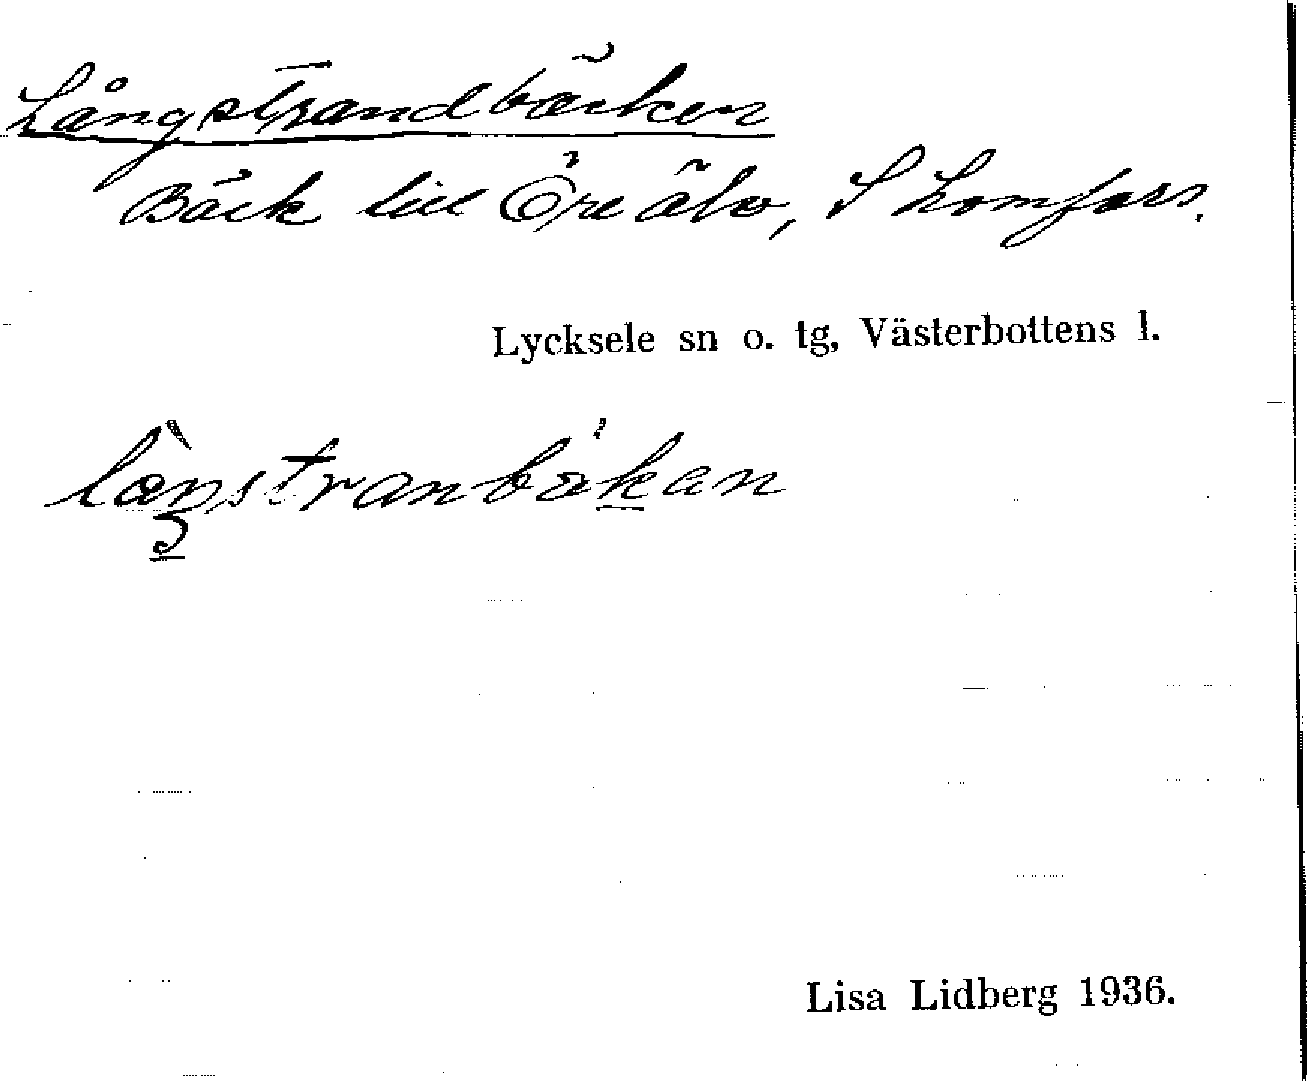 Långstrandbäcken
Bäck till Öre älv, S Lomfors.
Lycksele sn o. tg, Västerbottens l.
Lisa Lidberg 1936.